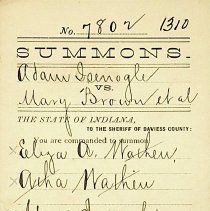 No. 7802 1310
SUMMONS.
Adam Isenogle
VS.
Mary Brown et al
THE STATE OF INDIANA,
TO THE SHERIFF OF DAVIESS COUNTY:
You are commanded to summon
Eliza A. Wathen,
Wathen